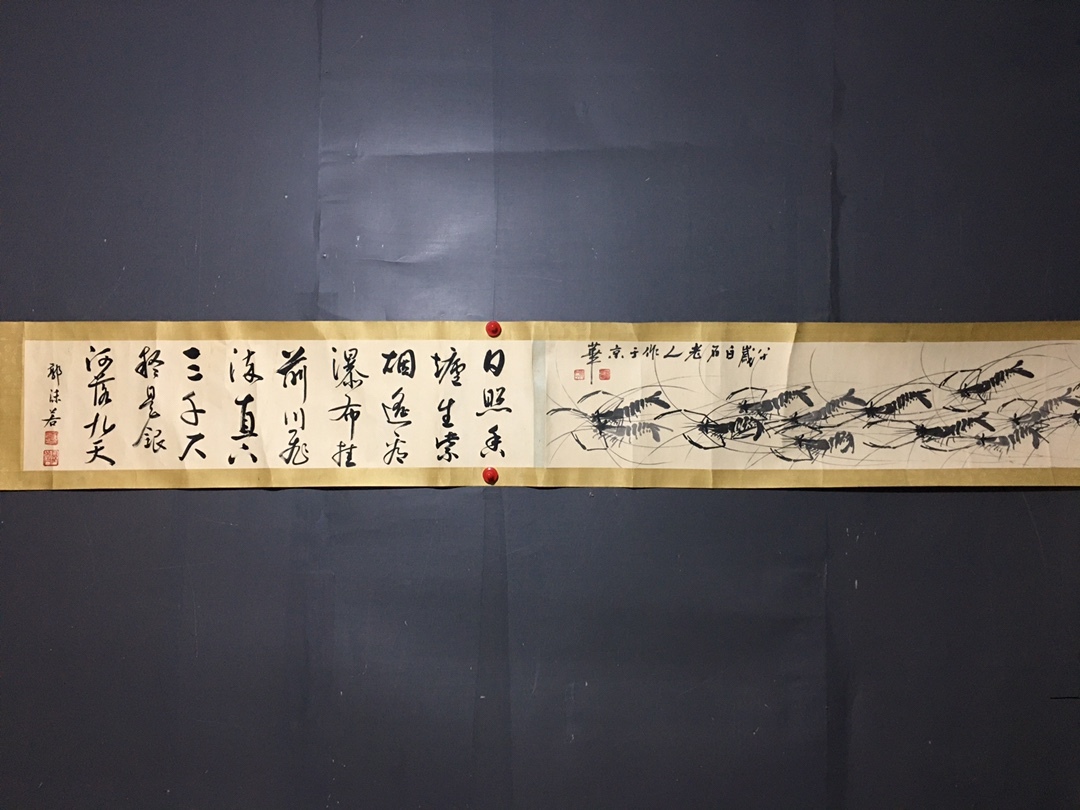 八歲白石老人作于京
華
日照香
爐生紫
烟遙看
瀑布挂
前川飛
流直下
三千尺
疑是銀
河落九天
郭沫若